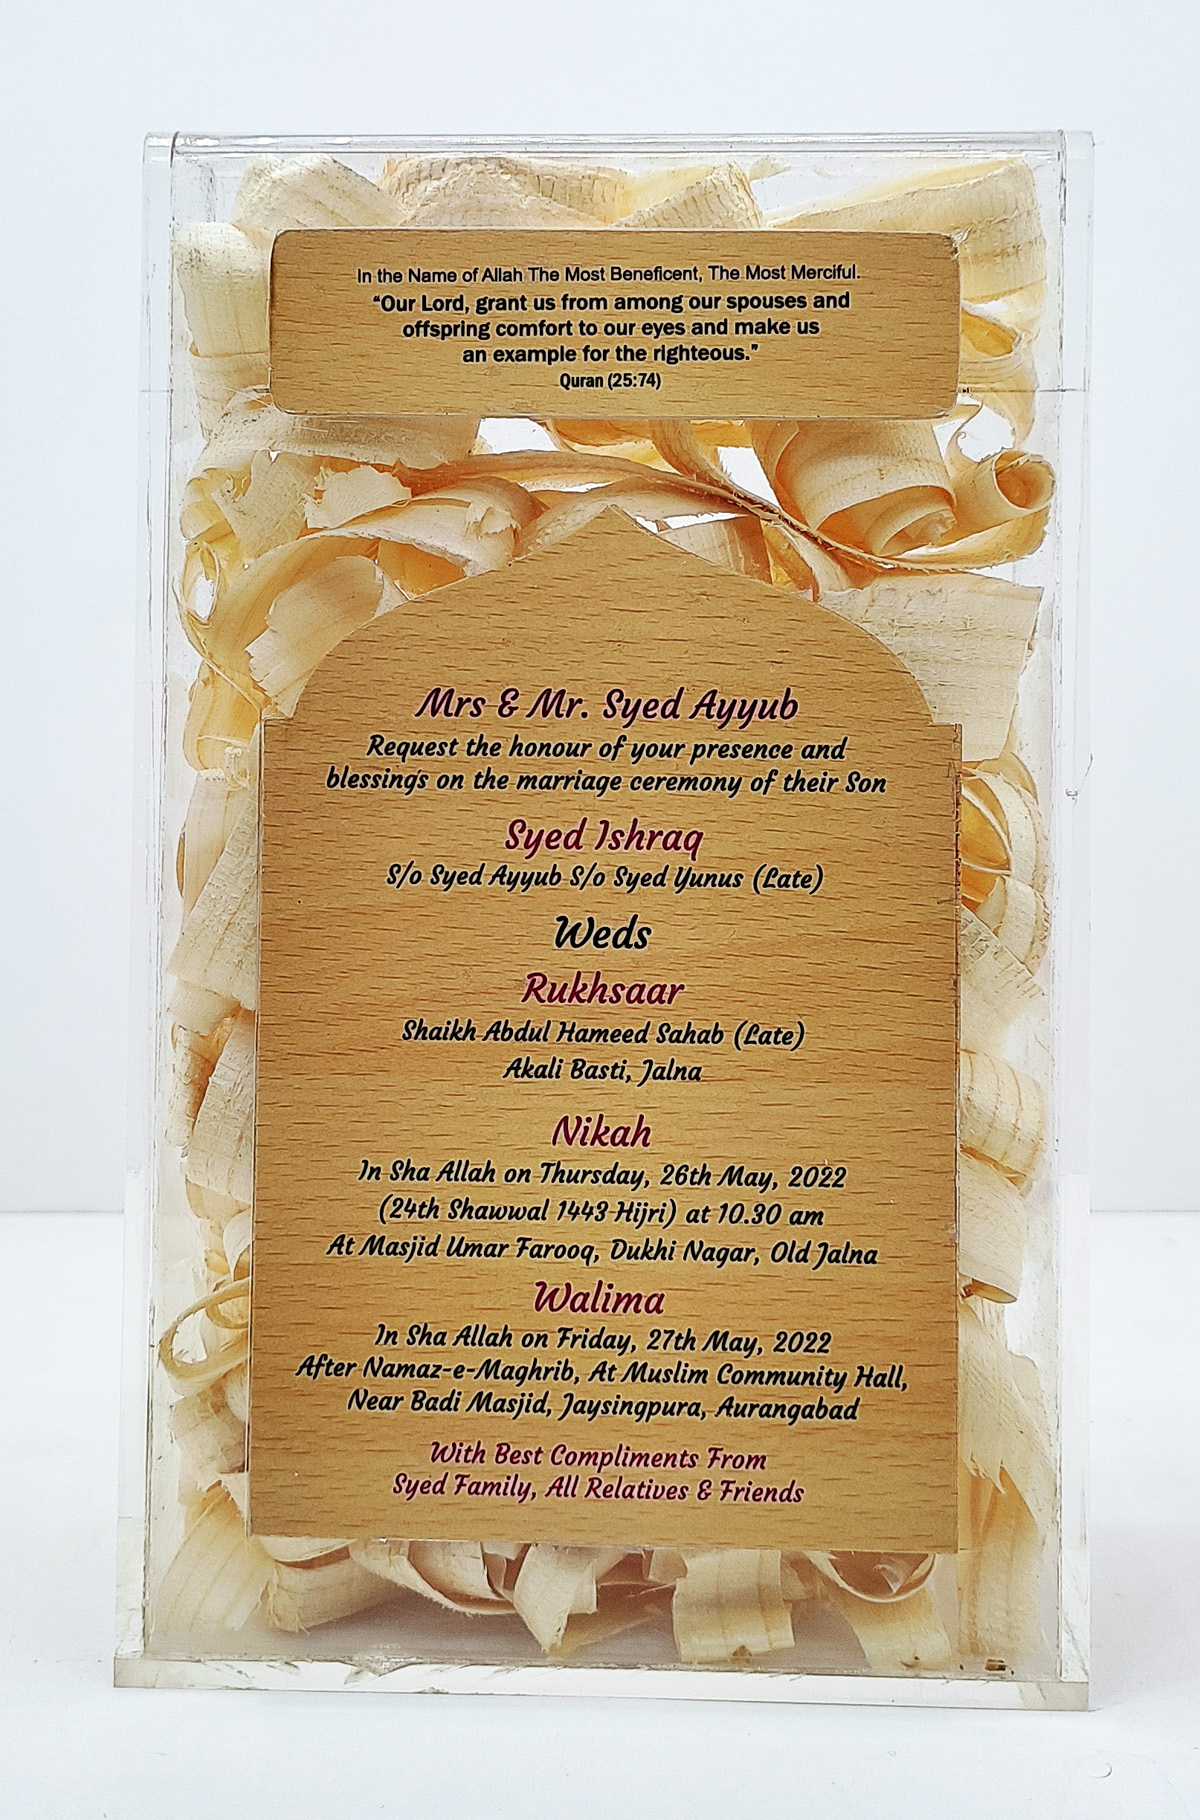 In the Name of Allah The Most Beneficent, The Most Merciful.
“Our Lord, grant us from among our spouses and
offspring comfort to our eyes and make us
an example for the righteous.”
Quran (25:74)
Mrs & Mr. Syed Ayyub
Request the honour of your presence and
blessings on the marriage ceremony of their Son
Syed Ishraq
S/o Syed Ayyub S/o Syed Yunus (Late)
Weds
Rukhsaar
Shaikh Abdul Hameed Sahab (Late)
Akali Basti, Jalna
Nikah
In Sha Allah on Thursday, 26th May, 2022
(24th Shawwal 1443 Hijri) at 10.30 am
At Masjid Umar Farooq, Dukhi Nagar, Old Jalna
Walima
In Sha Allah on Friday, 27th May, 2022
After Namaz-e-Maghrib, At Muslim Community Hall,
Near Badi Masjid, Jaysingpura, Aurangabad
With Best Compliments From
Syed Family, All Relatives & Friends